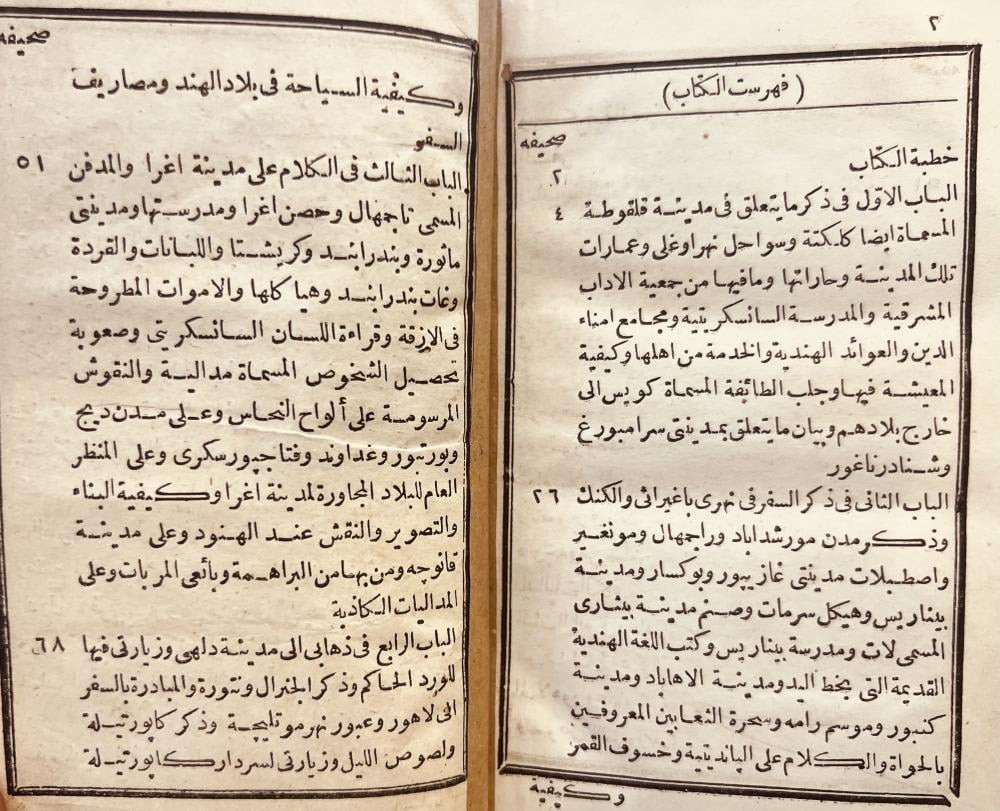 ٢
(فهرست الكتاب)
صحيفه
خطبة الكتاب ٢
الباب الاوّل فى ذكر ما يتعلق فى مدينة قلقوطة ٤
المسماة ايضا كلكتة وسواحل نهر اوغلى وعمارات
تلك المدينة وحاراتها ومافيها من جمعية الاداب
المشرقية والمدرسة السانسكريتية ومجامع امناء
الدين والعوائد الهندية والخدمة من اهلها وكيفية
المعيشة فيها وجلب الطائفة المسماة كويس الى
خارج بلادهم وبيان ما يتعلق بمدينتى سرامبورغ
وشنادرناغور
الباب الثانى فى ذكر السفر فى نهرى باغيراثى والكنك ٢٦
وذكر مدن مورشداباد وراجمهال ومونغير
واصطبلات مدينتى غازيپور وبوكسار ومدينة
بيناريس وهيكل سرمات وصنم مدينة بيشارى
المسمى لات ومدرسة بيناريس وكتب اللغة الهندية
القديمة التى بخط اليد ومدينة الاهاباد ومدينة
كنبور وموسم رامه وسحرة الثعابين المعروفين
بالحواة والكلام على الپانديتية وخسوف القمر
وكيفية
صحيفه
وكيفية السياحة فى بلاد الهند ومصاريف
السفر
الباب الثالث فى الكلام على مدينة اغرا والمدفن ٥١
المسمى تاجمهال وحصن اغرا ومدرستها ومدينتى
ماتورة وبندرابند وكريشتا واللبانات والقردة
وغات بندرابند وهياكلها والاموات المطروحة
فى الازقة وقراءة اللسان السانسكريتى وصعوبة
تحصيل الشخوص المسماة مدالية والنقوش
المرسومة على ألواح النحاس وعلى مدن ديج
وبورتبور وغداوند وفتاجپورسكرى وعلى المنظر
العام للبلاد المجاورة لمدينة اغرا وكيفية البناء
والتصوير والنقش عند الهنود وعلى مدينة
قانوجه ومن بها من البراهمة وبائعى المربات وعلى
المداليات الكاذبة
الباب الرابع فى ذهابى الى مدينة دلهى وزيارتى فيها ٦٨
للورد الحاكم وذكر الجنرال ونتورة والمبادرة بالسفر
الى لاهور وعبور نهر موتليجة وذكر كاپورتيلة
ولصوص الليل وزيارتى لسردار كاپورتيلة